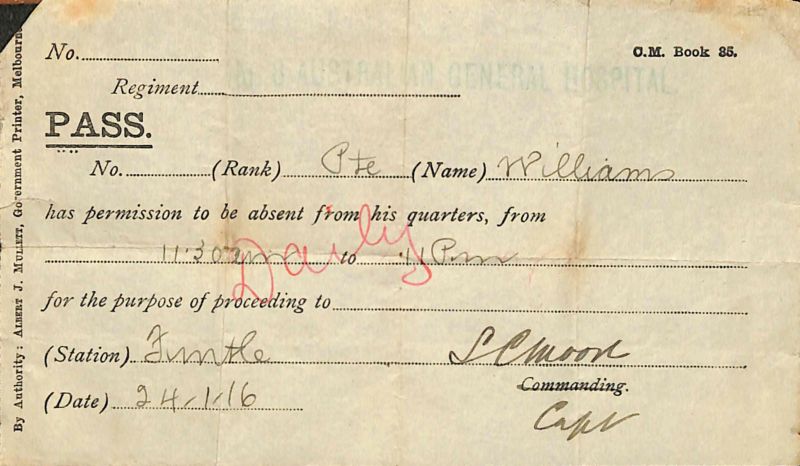 No. C.M. Book 85.
AUSTRALIAN GENERAL HOSPITAL
Regiment
PASS.
No. (Rank) Pte (Name) Williams
has permission to be absent from his quarters, from
11.30am to 11 Pm
Daily
for the purpose of proceeding to
(Station)
Commanding.
(Date) 24.1.16
Capt
By Authority: ALBERT J. MULLETT, Government Printer, Melbourne